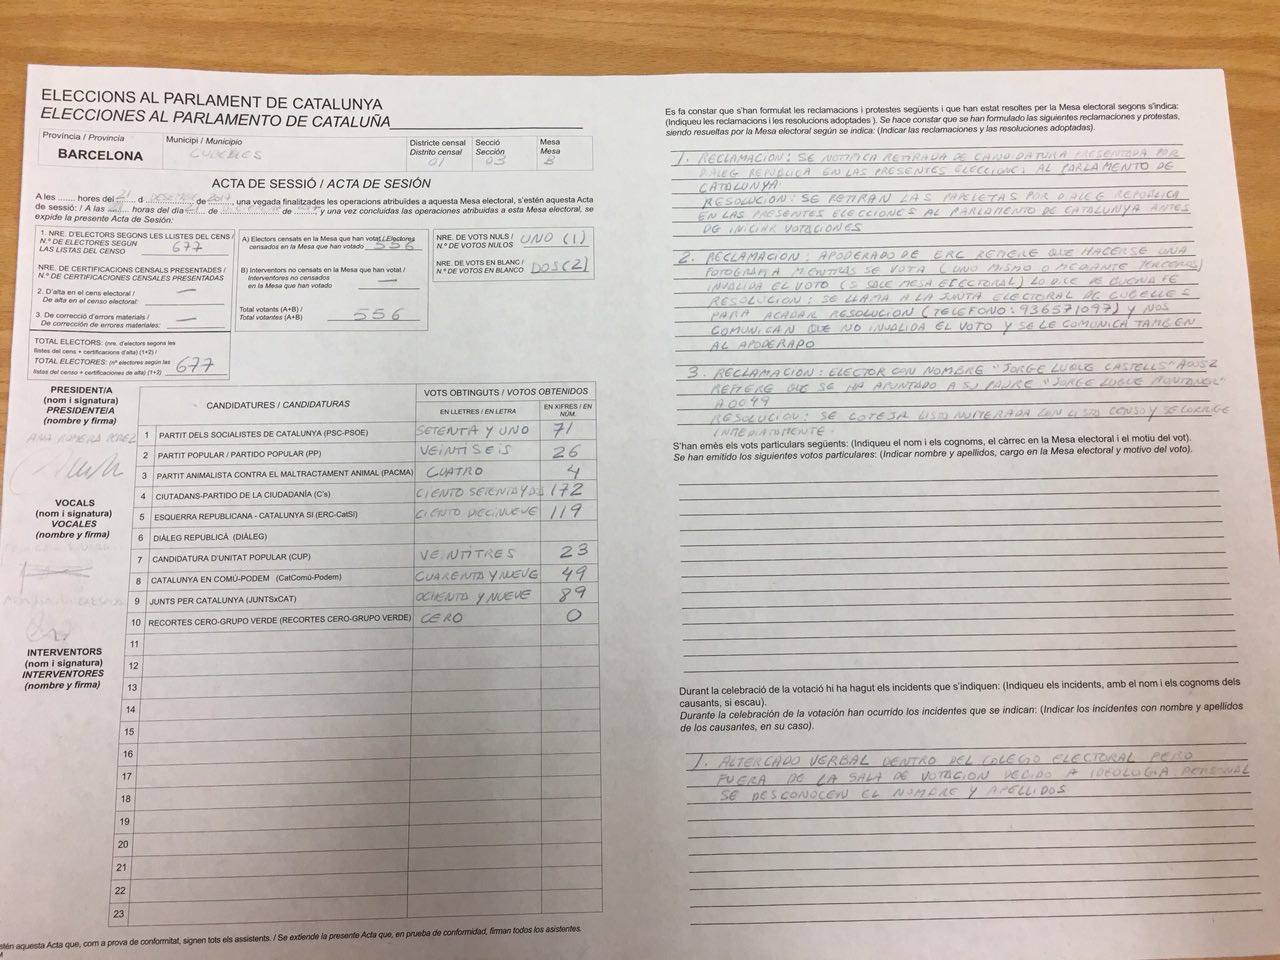 ELECCIONS AL PARLAMENT DE CATALUNYA
ELECCIONES AL PARLAMENTO DE CATALUÑA
Província / Provincia
BARCELONA
Municipi / Municipio
CUBELLES
Districte censal
Distrito censal
01
Secció
Sección
03
Mesa
Mesa
B
ACTA DE SESSIÓ / ACTA DE SESIÓN
A les ....... hores del 21 d DESEMBRE de 2017, una vegada finalitzades les operacions atribuïdes a aquesta Mesa electoral, s'estén aquesta Acta
de sessió: / A las horas del día de de 2017 y una vez concluidas las operaciones atribuidas a esta Mesa electoral, se
expide la presente Acta de Sesión:
1. NRE. D'ELECTORS SEGONS LES LLISTES DEL CENS /
N.º DE ELECTORES SEGÚN
LAS LISTAS DEL CENSO
677
NRE. DE CERTIFICACIONS CENSALS PRESENTADES /
N.º DE CERTIFICACIONES CENSALES PRESENTADAS
2. D'alta en el cens electoral /
De alta en el censo electoral: —
3. De correcció d'errors materials /
De corrección de errores materiales: —
TOTAL ELECTORS: (nre. d'electors segons les
llistes del cens + certificacions d'alta) (1+2) /
TOTAL ELECTORES: (nº electores según las
listas del censo + certificaciones de alta) (1+2)
677
A) Electors censats en la Mesa que han votat / Electores
censados en la Mesa que han votado 556
B) Interventors no censats en la Mesa que han votat /
Interventores no censados
en la Mesa que han votado —
Total votants (A+B) /
Total votantes (A+B) 556
NRE. DE VOTS NULS /
N.º DE VOTOS NULOS UNO (1)
NRE. DE VOTS EN BLANC /
N.º DE VOTOS EN BLANCO DOS (2)
PRESIDENT/A
(nom i signatura)
PRESIDENTE/A
(nombre y firma)
ANA ROMERA PEREZ
VOCALS
(nom i signatura)
VOCALES
(nombre y firma)
INTERVENTORS
(nom i signatura)
INTERVENTORES
(nombre y firma)
CANDIDATURES / CANDIDATURAS
VOTS OBTINGUTS / VOTOS OBTENIDOS
EN LLETRES / EN LETRA
EN XIFRES / EN NÚM.
1 PARTIT DELS SOCIALISTES DE CATALUNYA (PSC-PSOE) SETENTA Y UNO 71
2 PARTIT POPULAR / PARTIDO POPULAR (PP) VEINTISEIS 26
3 PARTIT ANIMALISTA CONTRA EL MALTRACTAMENT ANIMAL (PACMA) CUATRO 4
4 CIUTADANS-PARTIDO DE LA CIUDADANÍA (C's) CIENTO SETENTA Y DOS 172
5 ESQUERRA REPUBLICANA - CATALUNYA SÍ (ERC-CatSí) CIENTO DIECINUEVE 119
6 DIÀLEG REPUBLICÀ (DIÀLEG)
7 CANDIDATURA D'UNITAT POPULAR (CUP) VEINTITRES 23
8 CATALUNYA EN COMÚ-PODEM (CatComú-Podem) CUARENTA Y NUEVE 49
9 JUNTS PER CATALUNYA (JUNTSxCAT) OCHENTA Y NUEVE 89
10 RECORTES CERO-GRUPO VERDE (RECORTES CERO-GRUPO VERDE) CERO 0
11
12
13
14
15
16
17
18
19
20
21
22
23
aquesta Acta que, com a prova de conformitat, signen tots els assistents. / Se extiende la presente Acta que, en prueba de conformidad, firman todos los asistentes.
Es fa constar que s'han formulat les reclamacions i protestes següents i que han estat resoltes per la Mesa electoral segons s'indica:
(Indiqueu les reclamacions i les resolucions adoptades ). Se hace constar que se han formulado las siguientes reclamaciones y protestas,
siendo resueltas por la Mesa electoral según se indica: (Indicar las reclamaciones y las resoluciones adoptadas).
1. RECLAMACION: SE NOTIFICA RETIRADA DE CANDIDATURA PRESENTADA POR
DIALEG REPUBLICA EN LAS PRESENTES ELECCIONES AL PARLAMENTO DE
CATALUNYA.
RESOLUCION: SE RETIRAN LAS PAPELETAS POR DIALEG REPUBLICA
EN LAS PRESENTES ELECCIONES AL PARLAMENTO DE CATALUNYA ANTES
DE INICIAR VOTACIONES
2. RECLAMACION: APODERADO DE ERC REFIERE QUE HACERSE UNA
FOTOGRAFIA MIENTRAS SE VOTA (UNO MISMO O MEDIANTE TERCEROS)
INVALIDA EL VOTO (SI SALE MESA ELECTORAL) LO DICE DE BUENA FE
RESOLUCION: SE LLAMA A LA JUNTA ELECTORAL DE CUBELLES
PARA ACLARAR RESOLUCION (TELEFONO: 936571097) Y NOS
COMUNICAN QUE NO INVALIDA EL VOTO Y SE LE COMUNICA TAMBIEN
AL APODERADO
3. RECLAMACION: ELECTOR CON NOMBRE "JORGE LUQUE CASTELLS" A0052
REFIERE QUE SE HA APUNTADO A SU PADRE "JORGE LUQUE MONTANER"
A0049
RESOLUCION: SE COTEJA LISTA NUMERADA CON LISTA CENSO Y SE CORRIGE
INMEDIATAMENTE.
S'han emès els vots particulars següents: (Indiqueu el nom i els cognoms, el càrrec en la Mesa electoral i el motiu del vot).
Se han emitido los siguientes votos particulares: (Indicar nombre y apellidos, cargo en la Mesa electoral y motivo del voto).
Durant la celebració de la votació hi ha hagut els incidents que s'indiquen: (Indiqueu els incidents, amb el nom i els cognoms dels
causants, si escau).
Durante la celebración de la votación han ocurrido los incidentes que se indican: (Indicar los incidentes con nombre y apellidos
de los causantes, en su caso).
1. ALTERCADO VERBAL DENTRO DEL COLEGIO ELECTORAL PERO
FUERA DE LA SALA DE VOTACION DEBIDO A IDEOLOGIA PERSONAL
SE DESCONOCEN EL NOMBRE Y APELLIDOS